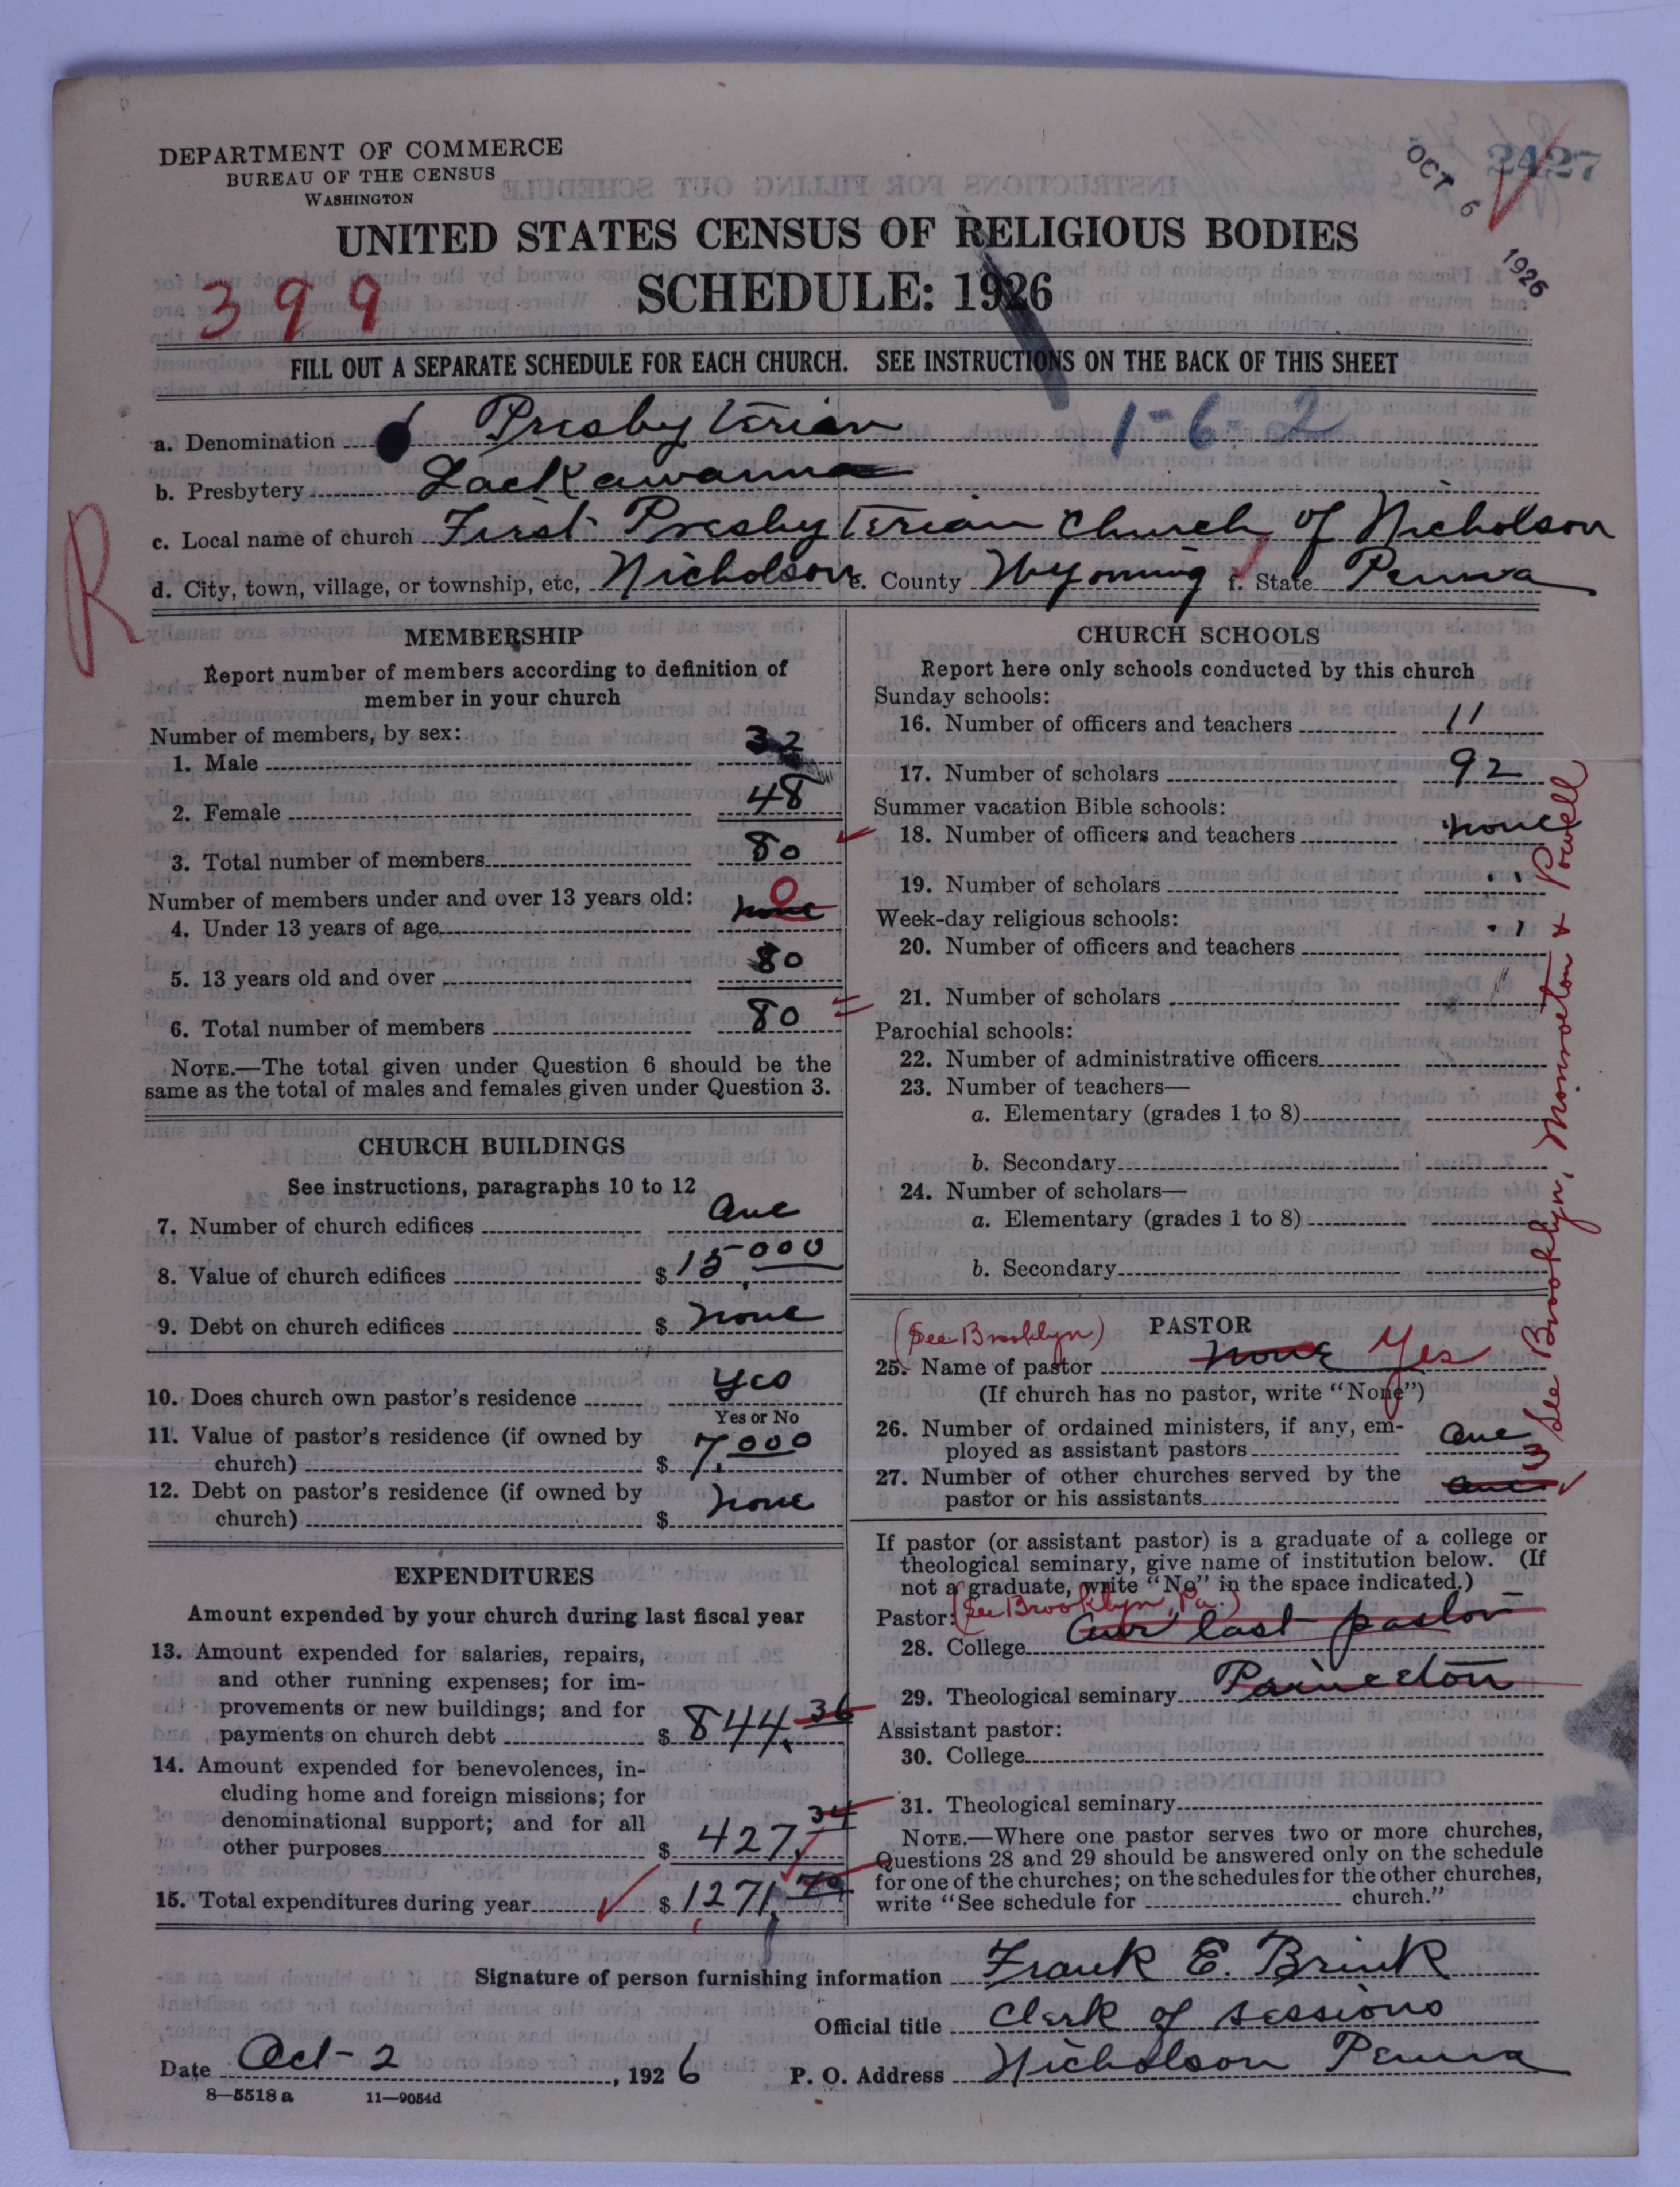 DEPARTMENT OF COMMERCE
BUREAU OF THE CENSUS
WASHINGTON
OCT 6 1926
2427
UNITED STATES CENSUS OF RELIGIOUS BODIES
SCHEDULE: 1926
399
FILL OUT A SEPARATE SCHEDULE FOR EACH CHURCH. SEE INSTRUCTIONS ON THE BACK OF THIS SHEET
a. Denomination Presbyterian 1-6-2
b. Presbytery Lackawanna
c. Local name of church First Presbyterian Church of Nicholson
d. City, town, village, or township, etc. Nicholson e. County Wyoming f. State Penna
R
MEMBERSHIP
Report number of members according to definition of
member in your church
Number of members, by sex:
1. Male 32
2. Female 48
3. Total number of members 80
Number of members under and over 13 years old:
4. Under 13 years of age none 0
5. 13 years old and over 80
6. Total number of members 80
NOTE.—The total given under Question 6 should be the
same as the total of males and females given under Question 3.
CHURCH BUILDINGS
See instructions, paragraphs 10 to 12
7. Number of church edifices One
8. Value of church edifices $ 15,000
9. Debt on church edifices $ none
10. Does church own pastor's residence Yes
Yes or No
11. Value of pastor's residence (if owned by
church) $ 7,000
12. Debt on pastor's residence (if owned by
church) $ none
EXPENDITURES
Amount expended by your church during last fiscal year
13. Amount expended for salaries, repairs,
and other running expenses; for im-
provements or new buildings; and for
payments on church debt $ 844.36
14. Amount expended for benevolences, in-
cluding home and foreign missions; for
denominational support; and for all
other purposes $ 427.34
15. Total expenditures during year $ 1271.70
CHURCH SCHOOLS
Report here only schools conducted by this church
Sunday schools:
16. Number of officers and teachers 11
17. Number of scholars 92
Summer vacation Bible schools:
18. Number of officers and teachers none
19. Number of scholars "
Week-day religious schools:
20. Number of officers and teachers "
21. Number of scholars "
Parochial schools:
22. Number of administrative officers
23. Number of teachers—
a. Elementary (grades 1 to 8)
b. Secondary
24. Number of scholars—
a. Elementary (grades 1 to 8)
b. Secondary
PASTOR
(See Brooklyn)
25. Name of pastor none Yes
(If church has no pastor, write "None")
26. Number of ordained ministers, if any, em-
ployed as assistant pastors One
27. Number of other churches served by the
pastor or his assistants One 3
See Brooklyn, Monroeton & Powell
If pastor (or assistant pastor) is a graduate of a college or
theological seminary, give name of institution below. (If
not a graduate, write "No" in the space indicated.)
Pastor: (See Brooklyn, Pa.)
28. College Our last pastor
29. Theological seminary Princeton
Assistant pastor:
30. College
31. Theological seminary
NOTE.—Where one pastor serves two or more churches,
Questions 28 and 29 should be answered only on the schedule
for one of the churches; on the schedules for the other churches,
write "See schedule for church."
Signature of person furnishing information Frank E. Brink
Official title Clerk of sessions
Date Oct-2, 1926 P. O. Address Nicholson Penna
8—5518a 11—9054d